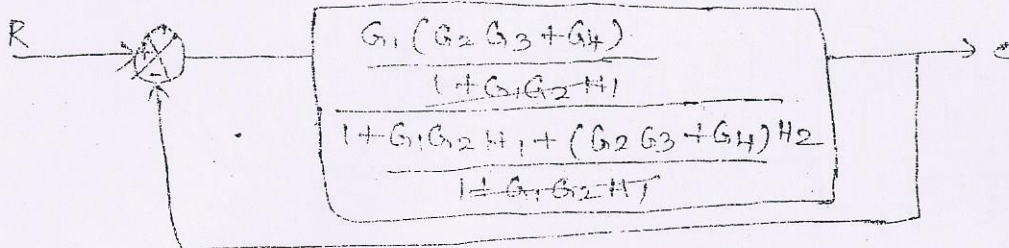 R
G1 (G2 G3 + G4)
1 + G1 G2 H1
1 + G1 G2 H1 + (G2 G3 + G4) H2
1 + G1 G2 H1
C
-